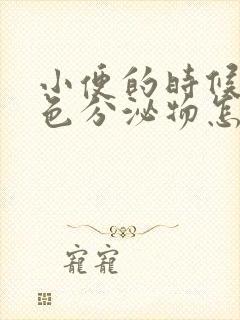 小便的時候
色分泌物怎
寵寵